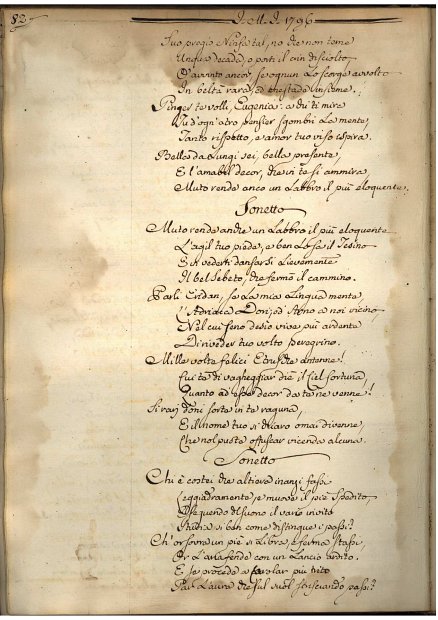 82
I. M. I. 1796
Tuo pregio è Ninfa tal, no che non teme
Unqua decada, o porti il crin disciolto
O avvinto ancor, se ognun lo scorge avvolto
In beltà rara, ed onestade insieme.
Pinger te volli, Eugenia: a chi ti mira
Tu d'ogn'atro pensier sgombri la mente,
Tanto rispetto, e amor tuo viso ispira.
Bella da lungi sei, bella presente,
E l'amabil decor, che in te si ammira
Muto rende anco un Labbro il più eloquente.
Sonetto
Muto rende anche un Labbro il più eloquente
L'agil tuo piede, e ben lo sa il Tesino
E in vederti dansar sì lievemente
Il bel Sebeto, che fermò il cammino.
Parli Eridan, se la mia Lingua mente,
Adriaca Dori, od Arno a noi vicino
Nel cui seno desio vive più ardente
Di riveder tuo volto peregrino.
Mille volte felici Etrusche antenne!
Cui tà di vagheggiar diè il Ciel fortuna,
Quanto ad esse decor da te ne venne!
Si rari doni sorte in te raguna,
E il nome tuo sì chiaro omai divenne,
Che nol puote offuscar vicenda alcuna.
Sonetto
Chi è costei che altiera inanzi fassi
Leggiadramente, e muove il piè spedito
E seguendo del suono il vario invito
sì ben come distingue i passi?
Ch'or sovra un piè si libra, e ferma stassi
Or l'aria fende con un lancio ardito.
E se procede a volar più
Par l'aura che sul suol strisciando passi?